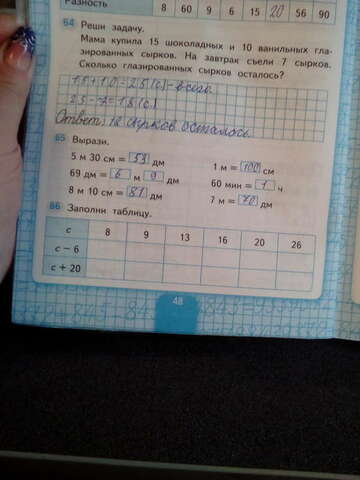 Разность 8 60 9 6 15 20 56 90
64 Реши задачу.
Мама купила 15 шоколадных и 10 ванильных гла-
зированных сырков. На завтрак съели 7 сырков.
Сколько глазированных сырков осталось?
15+10=25(с)-всего
25-7=18(с.)
Ответ: 18 сырков осталось
65 Вырази.
5 м 30 см = 53 дм 1 м = 100 см
69 дм = 6 м 9 дм 60 мин = 1 ч
8 м 10 см = 81 дм 7 м = 70 дм
66 Заполни таблицу.
с 8 9 13 16 20 26
с − 6
с + 20
48